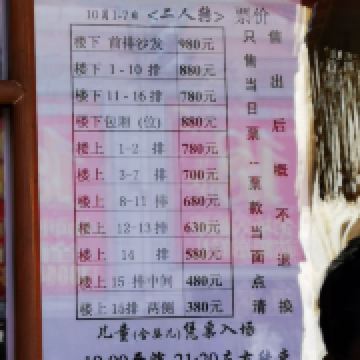 10月1-7日 <二人转> 票价
楼下 前排沙发 980元
楼下 1-10 排 880元
楼下 11-16 排 780元
楼下包厢 (位) 880元
楼上 1-2 排 780元
楼上 3-7 排 700元
楼上 8-11 排 680元
楼上 12-13 排 630元
楼上 14 排 580元
楼上 15 排中间 480元
楼上 15排 两侧 380元
只售当日票..票款当面点清
售出后概不退换
儿童(含婴儿)凭票入场